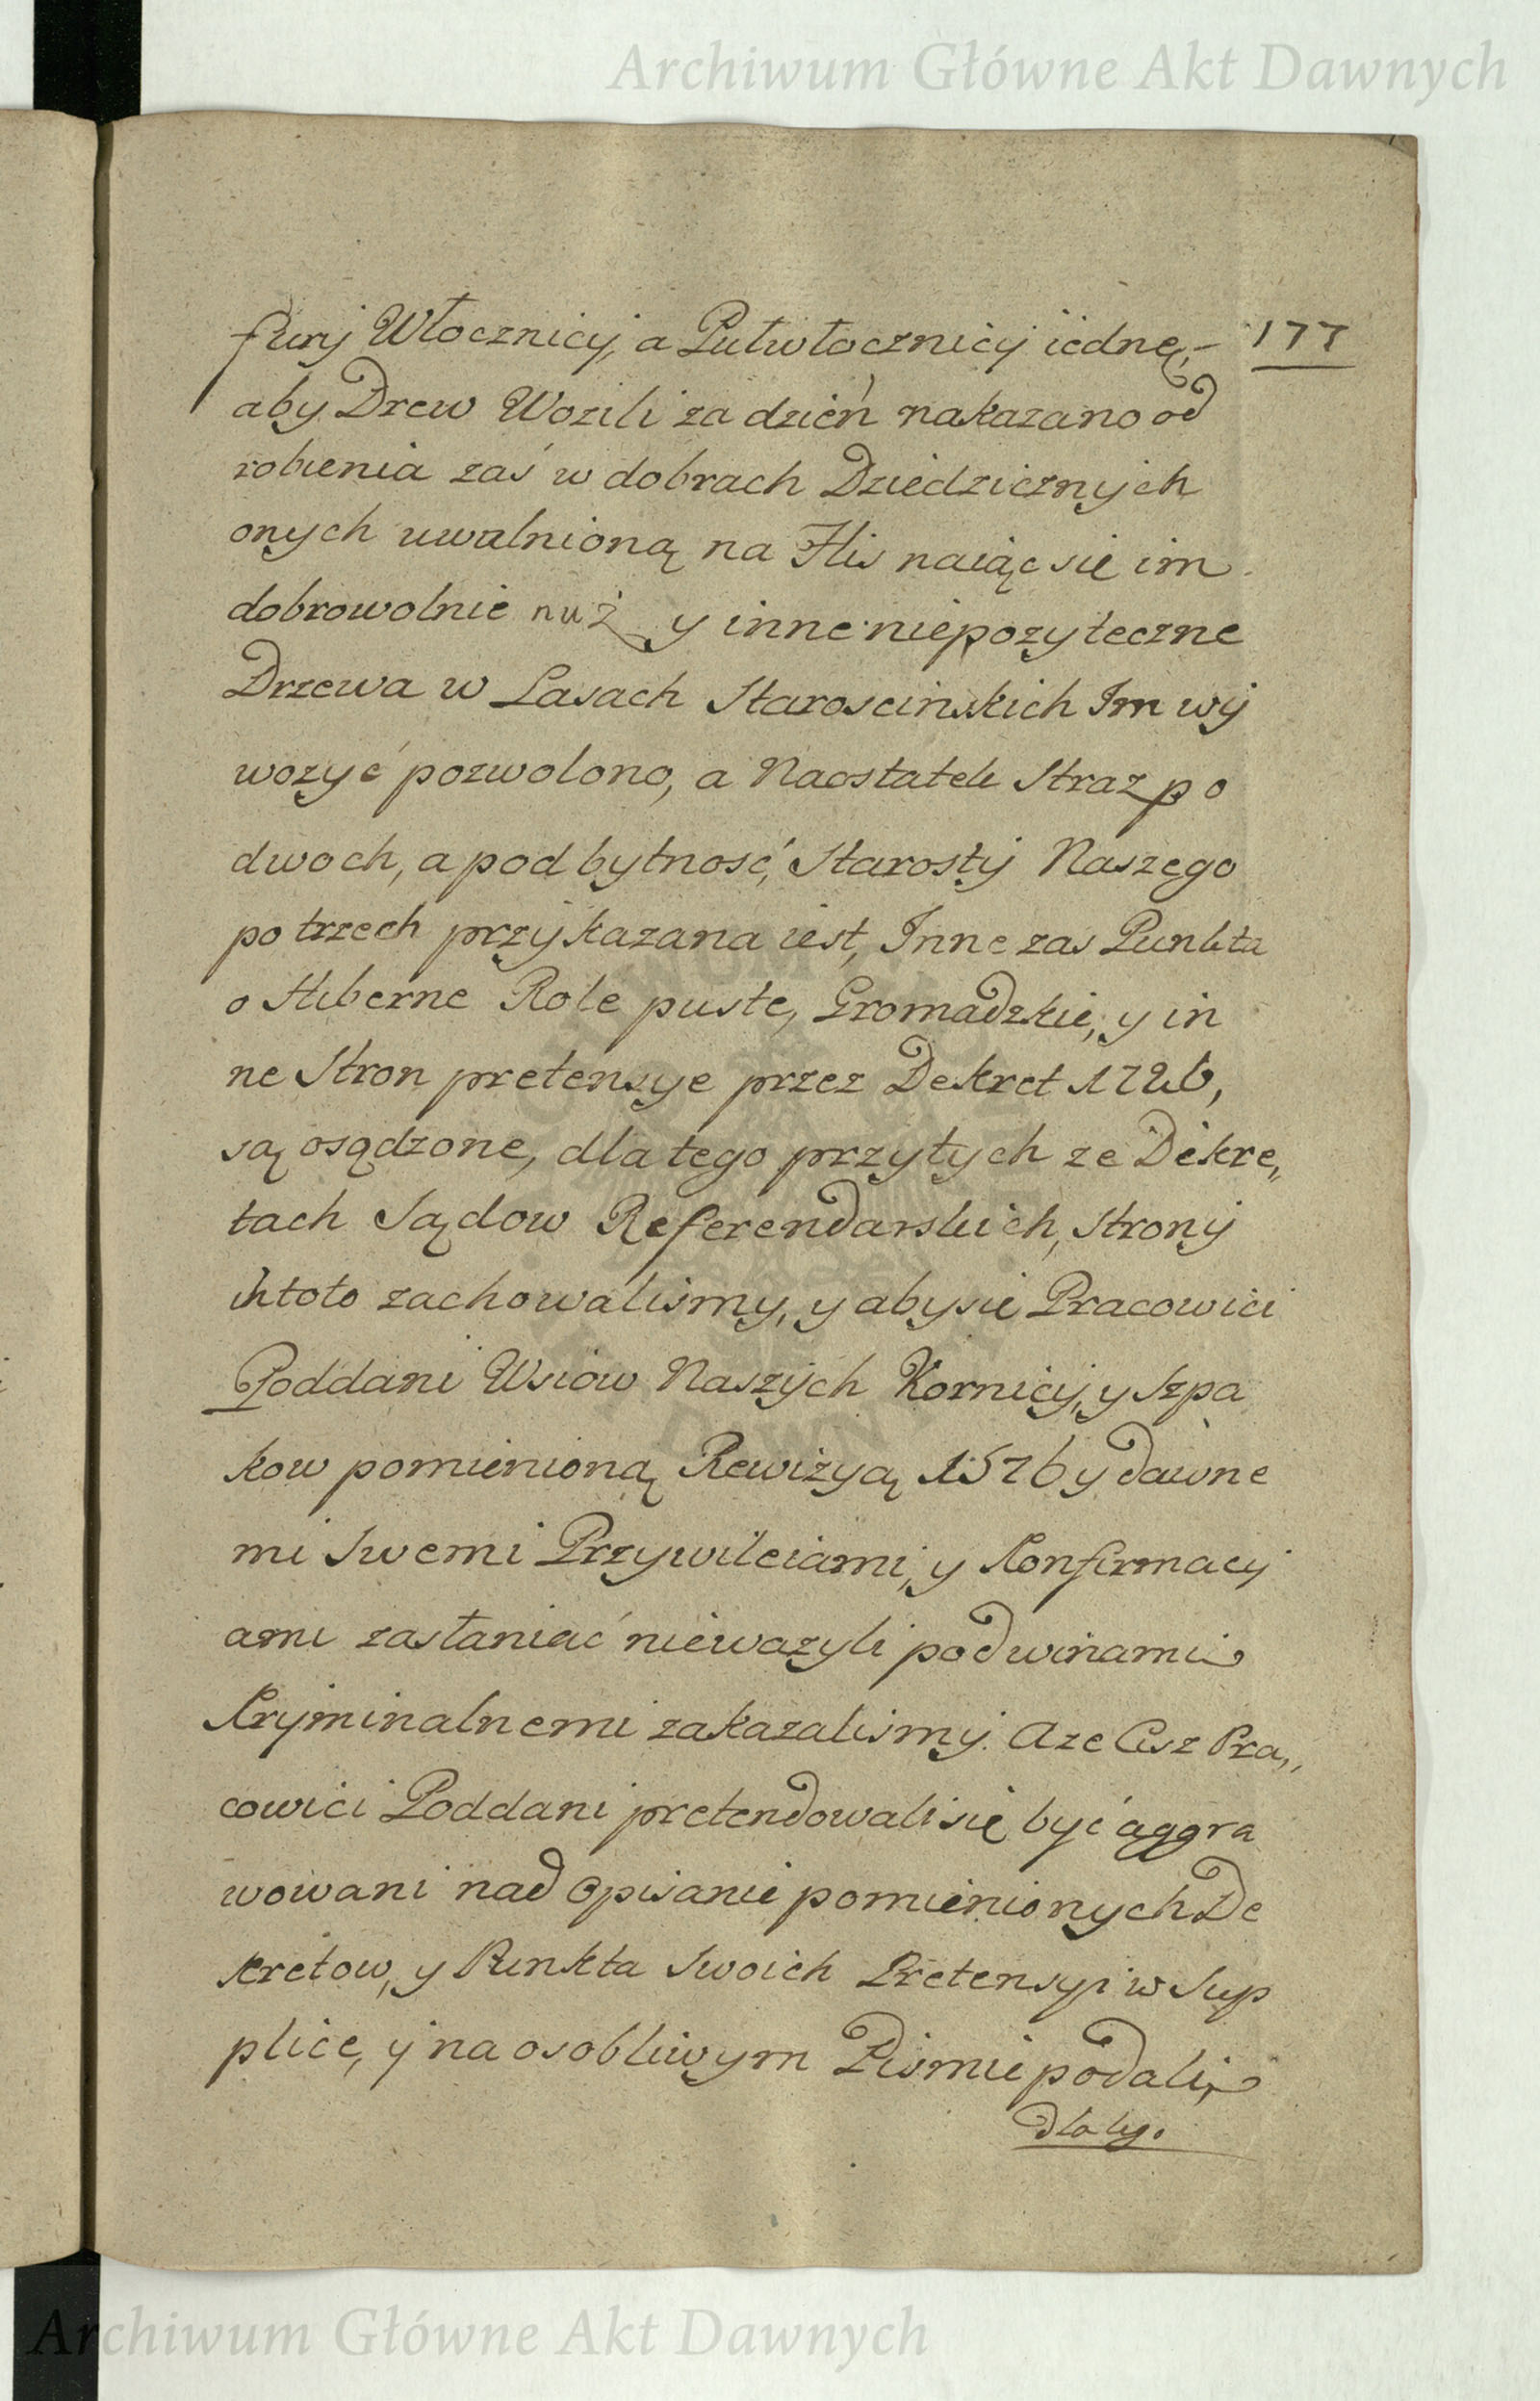 Archiwum Główne Akt Dawnych
177
fury Włocznicy, a Pułwłocznicy iednę,
aby Drew Wozili za dzień nakazano od
robienia zaś w dobrach Dziedzicznych
onych uwalnioną na Flis naiąc się im
dobrowolnie nuż y inne niepozyteczne
Drzewa w Lasach Staroscinskich Im wy
wozyć pozwolono, a Naostatek Straz po
dwoch, a pod bytnosć, Starosty Naszego
po trzech przykazana iest, Inne zas Punkta
o Hiberne Role puste, Gromadzkie, y in
ne Stron pretensye przez Dekret 1726,
są osądzone, dla tego przy tych ze Dekre„
tach Sądow Referendarskich, Strony
in toto zachowalismy, y aby sie Pracowici
Poddani Wsiow Naszych Kornicy, y Szpa
kow pomienioną Rewizyą 1576 y dawne
mi Swemi Przywileiami, y Konfirmacy
ami zasłaniać niewazyli pod winami
Kryminalnemi zakazalismy. A ze Cisz Pra„
cowici Poddani pretendowali się być aggra
wowani nad Opisanie pomienionych De
kretow, y Punkta Swoich Pretensyi w Sup
plice, y na osobliwym Pismie podali,
Archiwum Główne Akt Dawnych